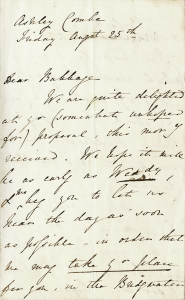 Ashley Combe
Friday Augst 25th
Dear Babbage
We are quite delighted
at yr (somewhat unhoped
for) proposal, this morng
received. We hope it will
be as early as Wedy,
& beg you to let us
hear the day as soon
as possible. in order that
we may take yr place
for you, in the Bridgwater